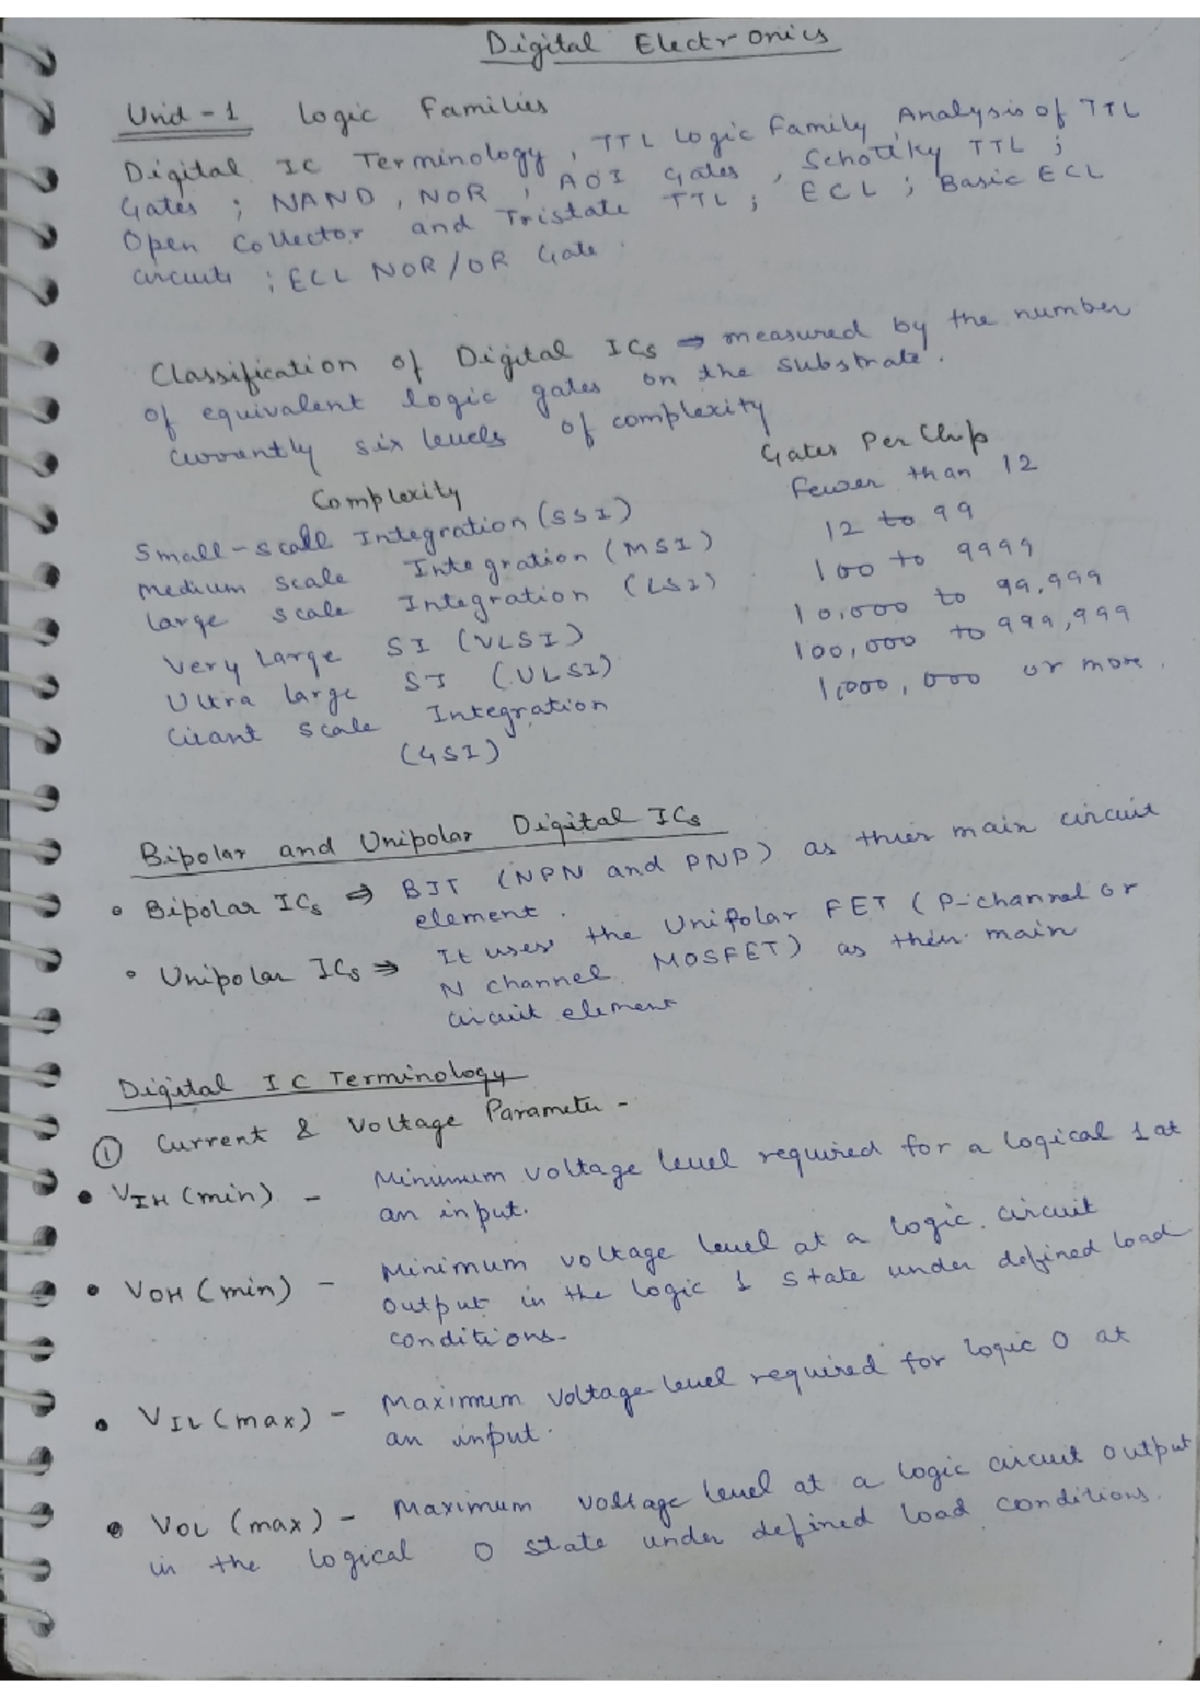 Digital Electronics
Unid - 1 Logic Families
Digital IC Terminology, TTL Logic Family Analysis of TTL
Gates ; NAND, NOR, AOI Gates, Schottky TTL ;
Open Collector and Tristate TTL ; ECL ; Basic ECL
circuits ; ECL NOR/OR Gate.
Classification of Digital ICs ⇒ measured by the number
of equivalent logic gates on the substrate.
currently six levels of complexity
Complexity Gates Per Chip
Small-scall Integration (SSI) Fewer than 12
Medium scale Integration (MSI) 12 to 99
Large scale Integration (LSI) 100 to 9999
Very Large SI (VLSI) 10,000 to 99,999
Ultra large SI (ULSI) 100,000 to 999,999
Giant scale Integration 1,000,000 or more.
(GSI)
Bipolar and Unipolar Digital ICs
• Bipolar ICs ⇒ BJT (NPN and PNP) as thier main circuit
element.
• Unipolar ICs ⇒ It uses the Unipolar FET (P-channel or
N channel MOSFET) as their main
circuit element
Digital IC Terminology
① Current & Voltage Parameter -
• VIH (min) - Minimum voltage level required for a logical 1 at
an input.
• VOH (min) - Minimum voltage level at a logic circuit
output in the logic 1 state under defined load
conditions-
• VIL (max) - Maximum voltage level required for logic 0 at
an input.
• VOL (max) - Maximum voltage level at a logic circuit output
in the logical 0 state under defined load conditions.